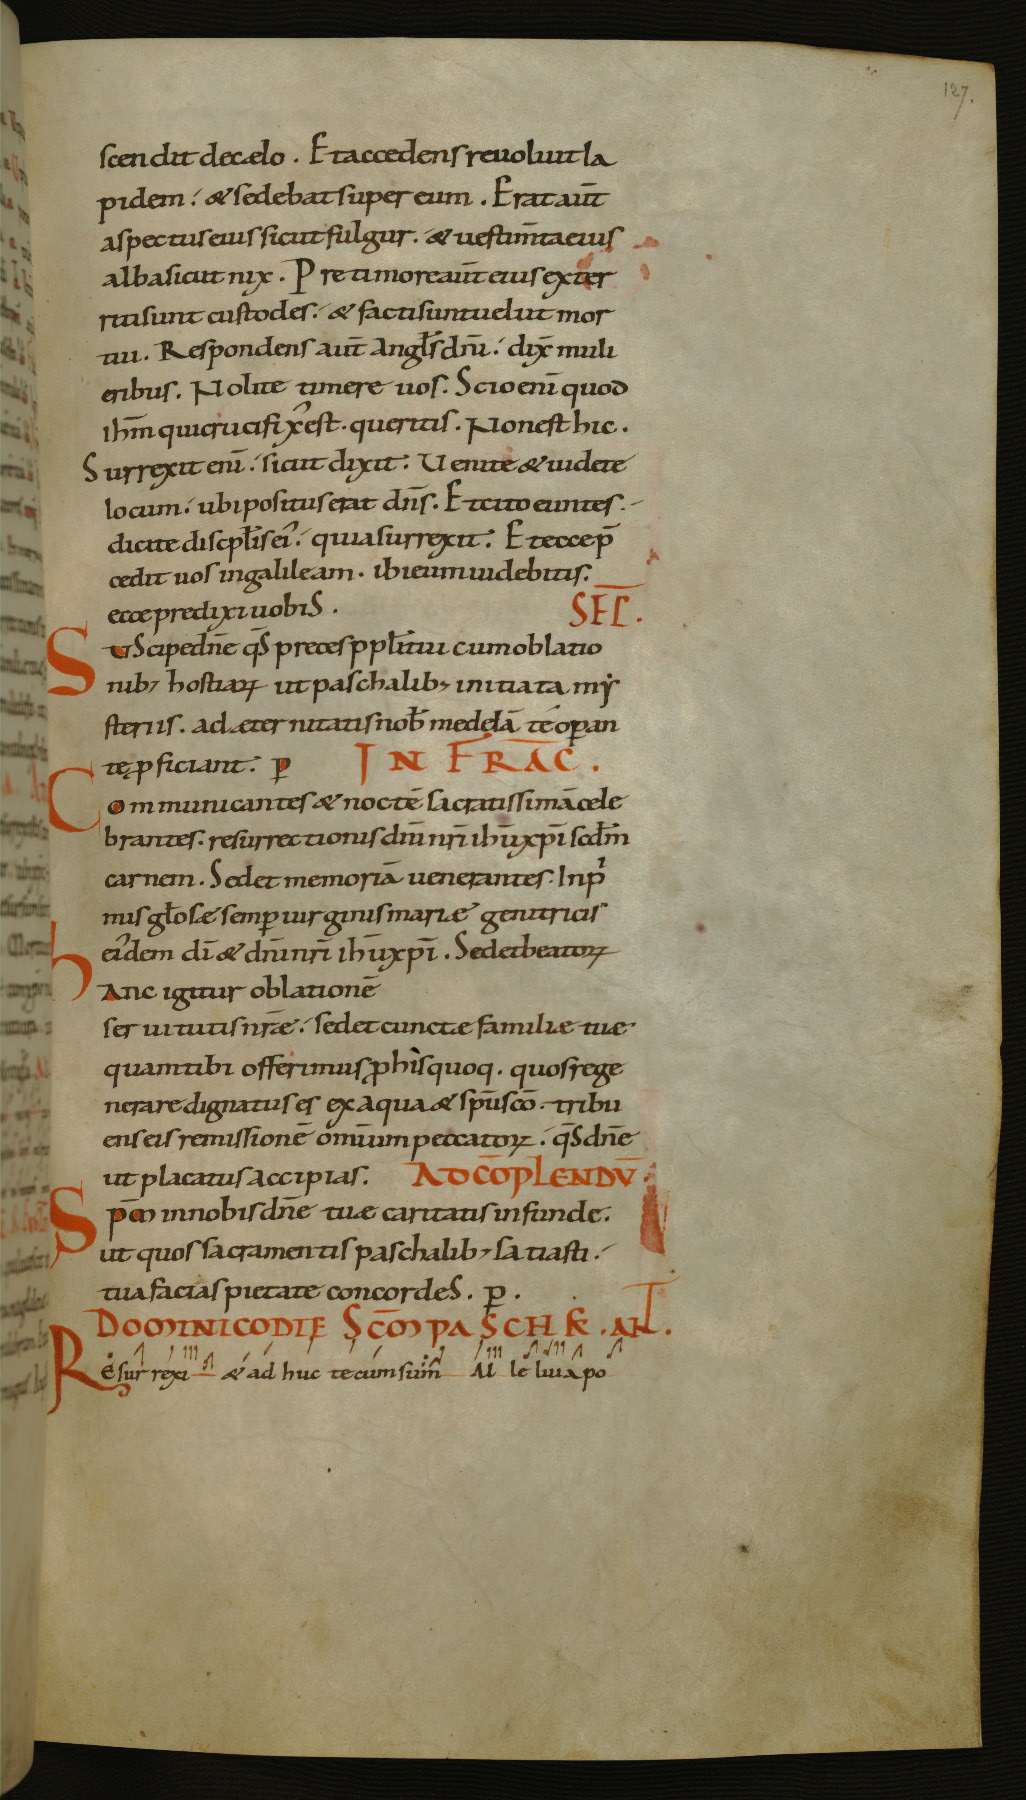 127.
scendit de cælo. Et accedens reuoluit la
pidem; & sedebat super eum. Erat aut̄
aspectus eius sicut fulgur. & uestim̄ta eius
alba sicut nix. Pre timore aut̄ eius exter
riti sunt custodes; & facti sunt uelut mor
tui. Respondens aut̄ angl̄s dn̄i; dix̄ muli
eribus. Nolite timere uos. Scio eni̅ quod
ihm̄ qui crucifix᾿ est. queritis. Non est hic.
Surrexit eni̅; sicut dixit. Uenite & uidete
locum; ubi positus erat dn̄s. Et cito euntes.
dicite discipl̄is ei᾿; quia surrexit. Et ecce p̄
cedit uos in galileam. ibi eum uidebitis.
ecce predixi uobis.
SEC̄.
Suscipe dn̄e qs̄ preces ppl̄i tui cum oblatio
nib; hostiaꝝ ut paschalib; initiata my
steriis. ad æternitatis nob̄ medelā te oꝑan
te ꝓficiant. ꝑ IN FRAC̄.
Communicantes & noctē sacratissimā cele
brantes. resurrectionis dn̄i nr̄i ihū xpī scdm̄
carnem. Sed et memoriā uenerantes. In pͥ
mis gl̄osæ semꝑ uirginis mariæ genitricis
ei᾿dem dī & dn̄i nr̄i ihū xpī. Sed et beatoꝝ
Hanc igitur oblationē
seruitutis nr̄æ; sed et cunctæ familiæ tuæ
quam tibi offerimus ꝓ his quoq. quos rege
nerare dignatus es ex aqua & spū scō. tribu
ens eis remissionē omīum peccatoꝝ. qs̄ dn̄e
ut placatus accipias. AD CŌPLENDŪ.
Spm̄ in nobis dn̄e tuæ caritatis infunde.
ut quos sacramentis paschalib; satiasti.
tua facias pietate concordes. ꝑ.
DOMINICO DIE SC̄M PASCHĒ. ANT.
Resurrexi & ad huc tecum sum̄ Alleluia po